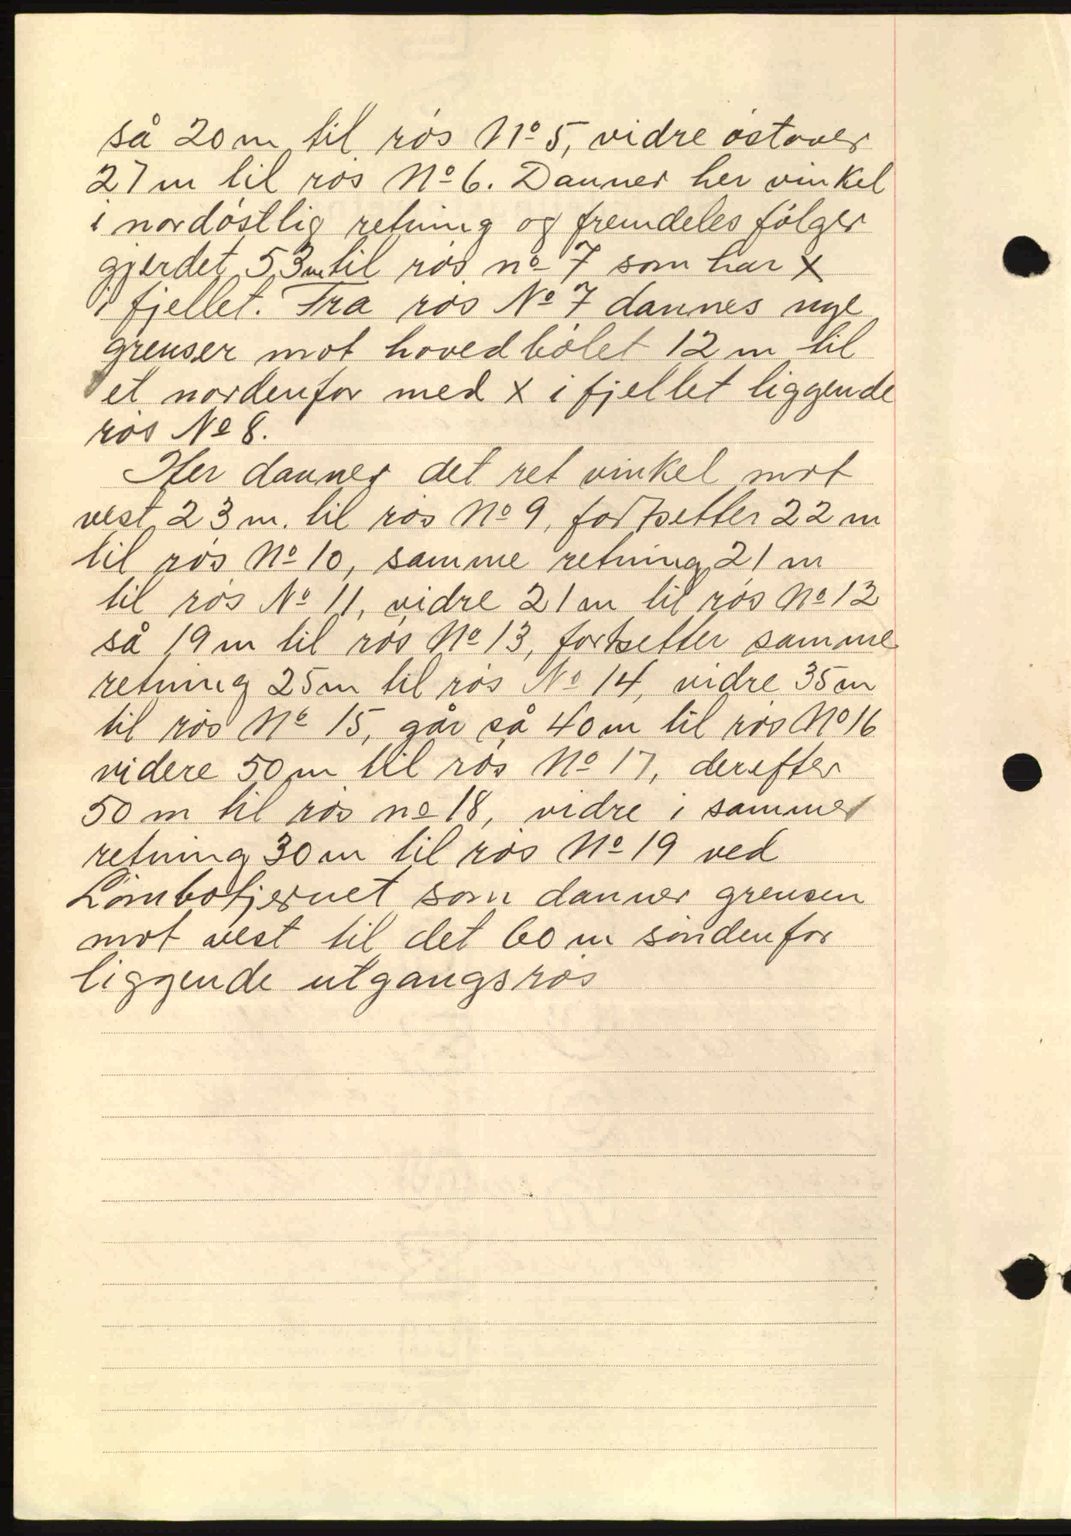 så 20 m til rós Nº 5, vidre óstover
27 m til rós Nº 6. Danner her vinkel
i nordóstlig retning og fremdeles fólger
gjerdet 53 m til rós nº 7 som har x
i fjellet. Fra rós Nº 7 dannes nye
grenser mot hovedbólet 12 m til
et nordenfor med x i fjellet liggende
rós Nº 8.
Her danner det ret vinkel mot
vest 23 m. til rós Nº 9, fortsetter 22 m
til rós Nº 10, samme retning 21 m
til rós Nº 11, vidre 21 m til rós Nº 12
så 19 m til rós Nº 13, fortsetter samme
retning 25 m til rós Nº 14, vidre 35 m
til rós Nº 15, går så 40 m til rós Nº 16
videre 50 m til rós Nº 17, derefter
50 m til rós nº 18, vidre i samme
retning 30 m til rós Nº 19 ved
Lómbotjernet som danner grensen
mot vest til det 60 m sóndenfor
liggende utgangsrós